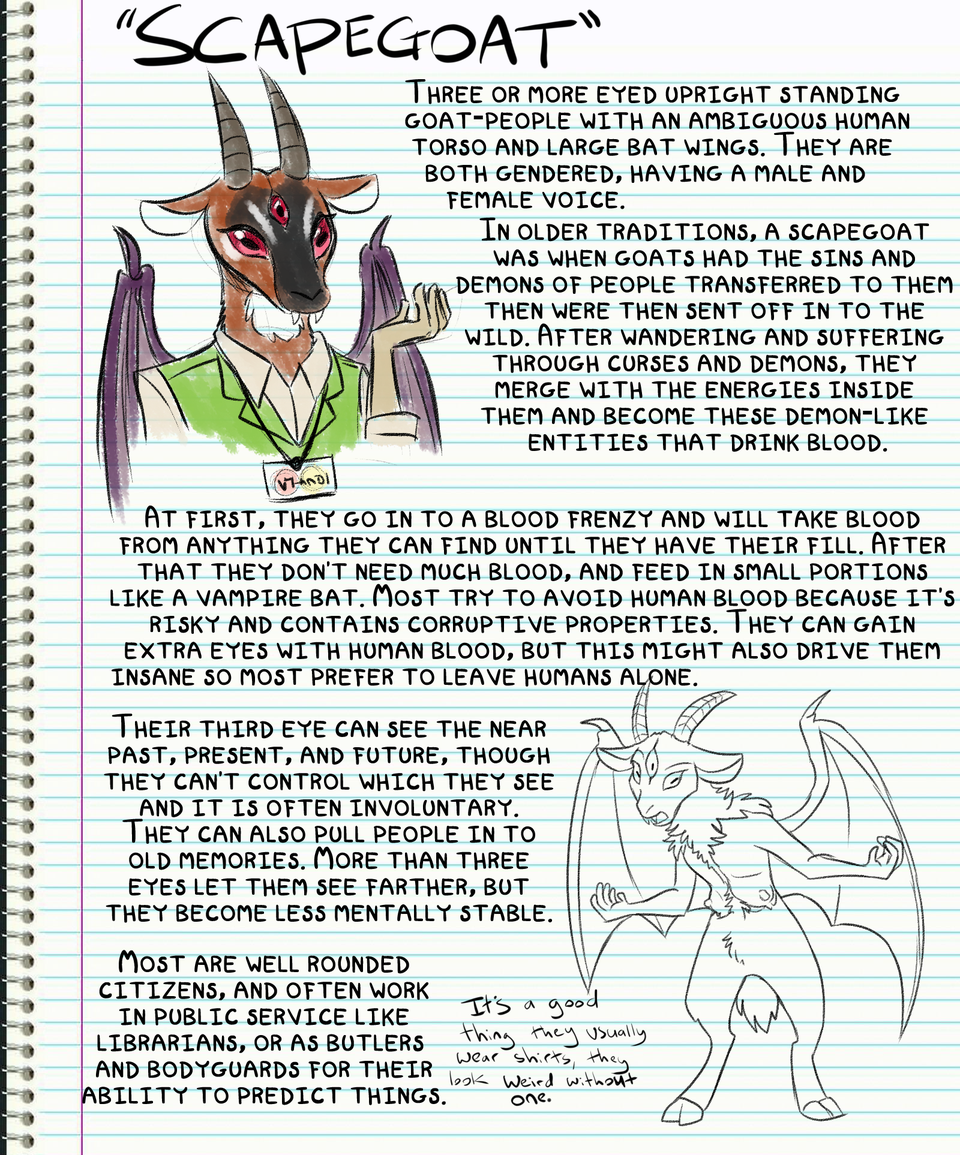 "SCAPEGOAT"
THREE OR MORE EYED UPRIGHT STANDING
GOAT-PEOPLE WITH AN AMBIGUOUS HUMAN
TORSO AND LARGE BAT WINGS. THEY ARE
BOTH GENDERED, HAVING A MALE AND
FEMALE VOICE.
IN OLDER TRADITIONS, A SCAPEGOAT
WAS WHEN GOATS HAD THE SINS AND
DEMONS OF PEOPLE TRANSFERRED TO THEM
THEN WERE THEN SENT OFF IN TO THE
WILD. AFTER WANDERING AND SUFFERING
THROUGH CURSES AND DEMONS, THEY
MERGE WITH THE ENERGIES INSIDE
THEM AND BECOME THESE DEMON-LIKE
ENTITIES THAT DRINK BLOOD.
AT FIRST, THEY GO IN TO A BLOOD FRENZY AND WILL TAKE BLOOD
FROM ANYTHING THEY CAN FIND UNTIL THEY HAVE THEIR FILL. AFTER
THAT THEY DON'T NEED MUCH BLOOD, AND FEED IN SMALL PORTIONS
LIKE A VAMPIRE BAT. MOST TRY TO AVOID HUMAN BLOOD BECAUSE IT'S
RISKY AND CONTAINS CORRUPTIVE PROPERTIES. THEY CAN GAIN
EXTRA EYES WITH HUMAN BLOOD, BUT THIS MIGHT ALSO DRIVE THEM
INSANE SO MOST PREFER TO LEAVE HUMANS ALONE.
THEIR THIRD EYE CAN SEE THE NEAR
PAST, PRESENT, AND FUTURE, THOUGH
THEY CAN'T CONTROL WHICH THEY SEE
AND IT IS OFTEN INVOLUNTARY.
THEY CAN ALSO PULL PEOPLE IN TO
OLD MEMORIES. MORE THAN THREE
EYES LET THEM SEE FARTHER, BUT
THEY BECOME LESS MENTALLY STABLE.
MOST ARE WELL ROUNDED
CITIZENS, AND OFTEN WORK
IN PUBLIC SERVICE LIKE
LIBRARIANS, OR AS BUTLERS
AND BODYGUARDS FOR THEIR
ABILITY TO PREDICT THINGS.
It's a good
thing they usually
wear shirts, they
look weird without
one.